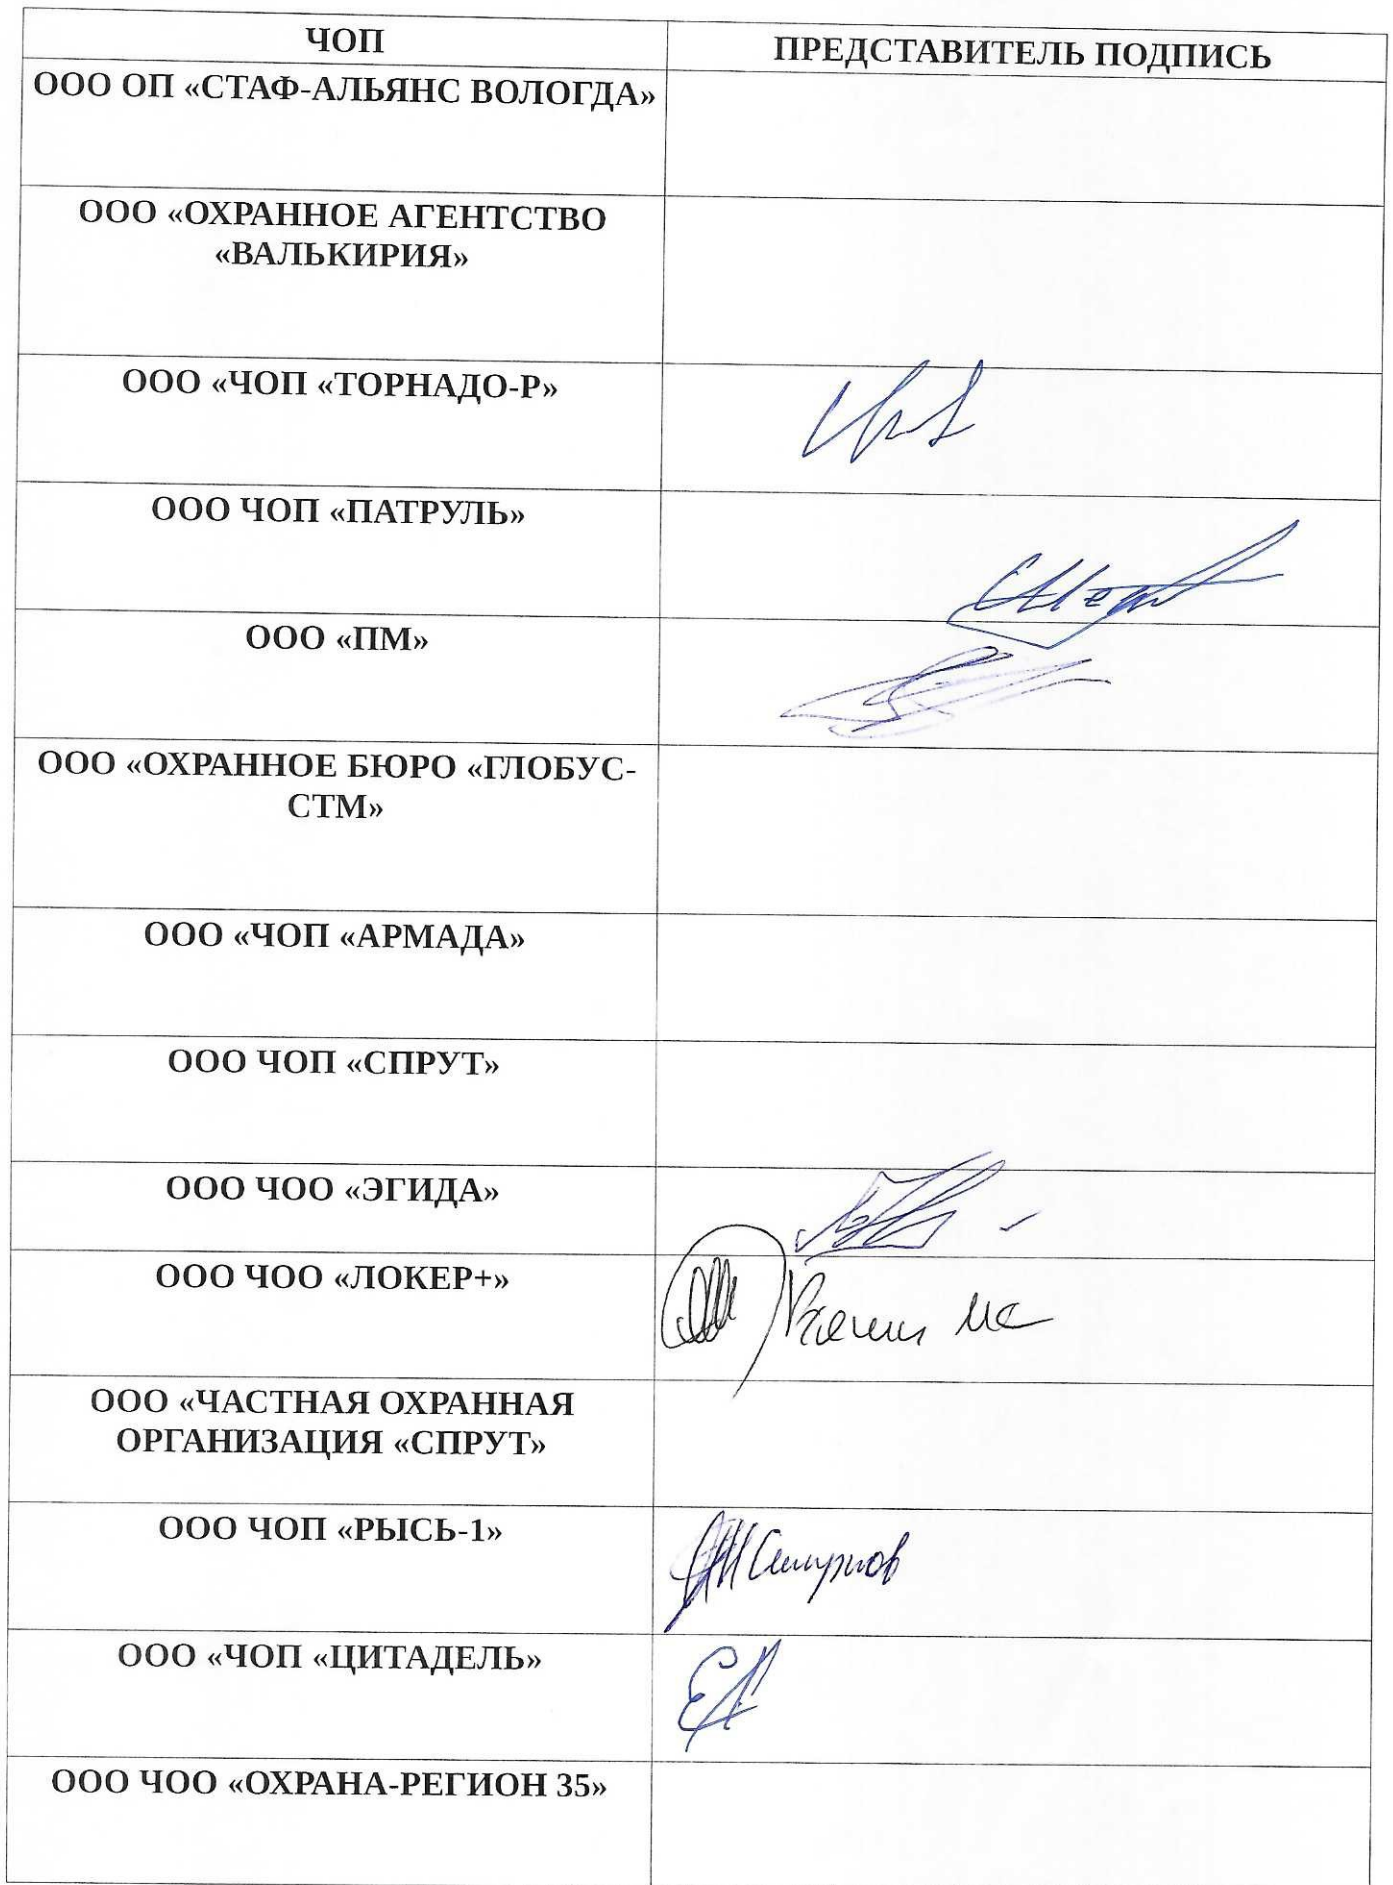 ЧОП
ПРЕДСТАВИТЕЛЬ ПОДПИСЬ
ООО ОП «СТАФ-АЛЬЯНС ВОЛОГДА»
ООО «ОХРАННОЕ АГЕНТСТВО
«ВАЛЬКИРИЯ»
ООО «ЧОП «ТОРНАДО-Р»
ООО ЧОП «ПАТРУЛЬ»
ООО «ПМ»
ООО «ОХРАННОЕ БЮРО «ГЛОБУС-
СТМ»
ООО «ЧОП «АРМАДА»
ООО ЧОП «СПРУТ»
ООО ЧОО «ЭГИДА»
ООО ЧОО «ЛОКЕР+»
ООО «ЧАСТНАЯ ОХРАННАЯ
ОРГАНИЗАЦИЯ «СПРУТ»
ООО ЧОП «РЫСЬ-1»
Смирнов
ООО «ЧОП «ЦИТАДЕЛЬ»
ООО ЧОО «ОХРАНА-РЕГИОН 35»